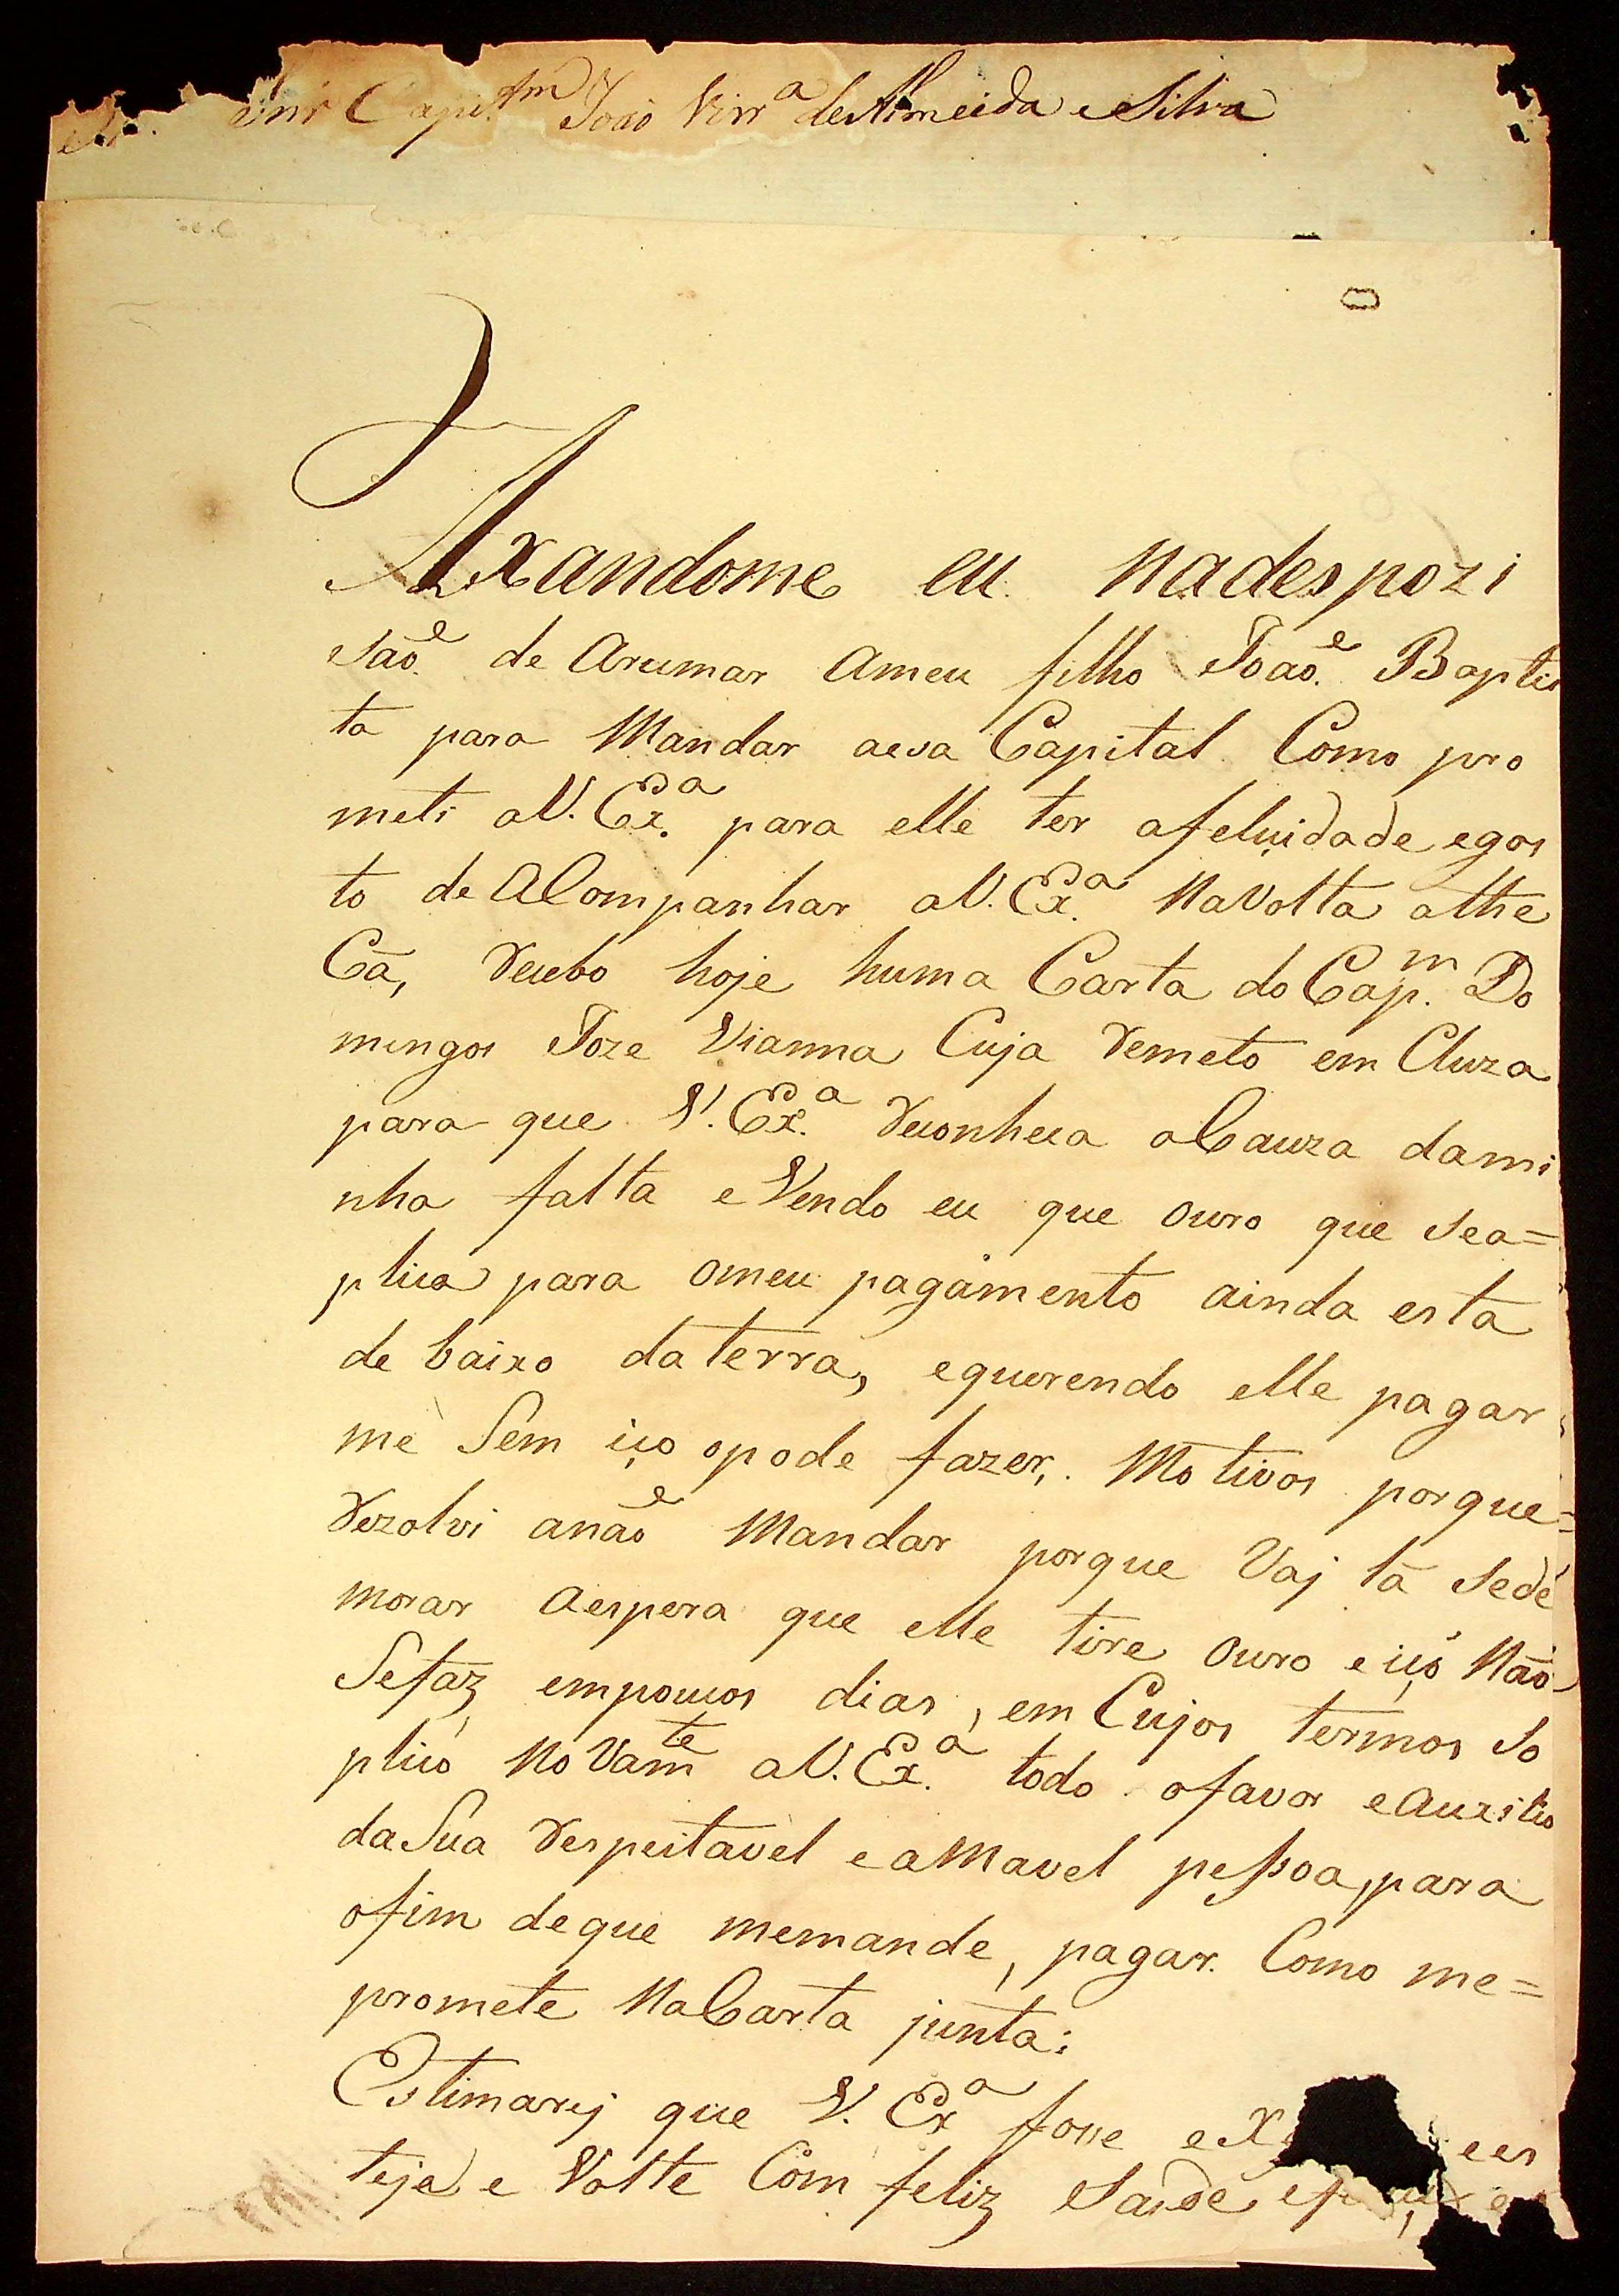 Snr Capitam João Virra de Almeida e Silva
Axandome eu nadespozi
são de Arumar Ameu filho João Baptis
ta para Mandar aesa Capital Como pro
meti aV. Exa para elle ter afelicidade egos
to de aCompanhar aV. Exa NaVolta athe
Cá, Recebo hoje huma Carta do Capm. Do
mingos Joze Vianna Cuja Remeto em Cluza
para que V. Exa Reconheca aCauza dami
nha falta e Vendo eu que ouro que sea=
plica para omeu pagamento ainda esta
de baixo da terra, equerendo elle pagar
me Sem iço opode fazer,. Motivos porque=
Rezolvi anão Mandar porque Vaj lá sede
morar aespera que elle tire ouro e iço Não
Sefaz empoucos dias, em Cujos termos So
plico NoVamte aV. Exa. todo ofavor eAuxilio
da Sua Respeitavel eaMavel peſsoa, para
ofim deque memande, pagar. Como me=
promete NaCarta junta:
Estimarej que V. Exa fosse e ees
teja e Volte Com feliz Saude